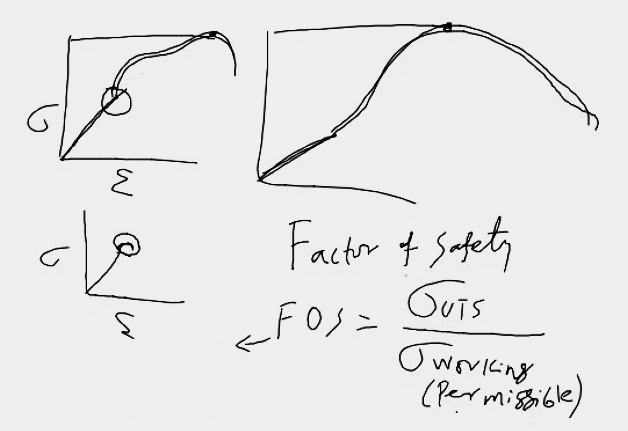 σ
Σ
σ
Σ
Factor of safety
FOS = σUTS / σworking
(Permissible)